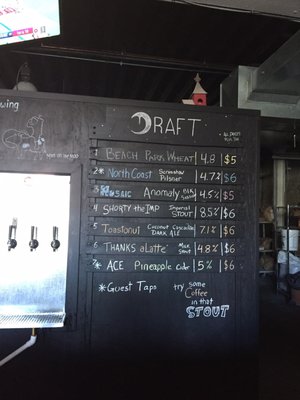 wing
DRAFT
1 BEACH PARK WHEAT 4.8 $5
2* NORTH COAST Scrimshaw Pilsner 4.7% $6
3 MOSAIC ANOMALY 4.5% $5
4 SHORTY the IMP Imperial STOUT 8.5% $6
5 Toastonut Coconut Cascadian DARK ALE 7.1 $6
6 THANKS a Latte' Milk Stout 4.8% $6
7* ACE Pineapple cider 5% $6
*Guest Taps
try some
Coffee
in that
STOUT